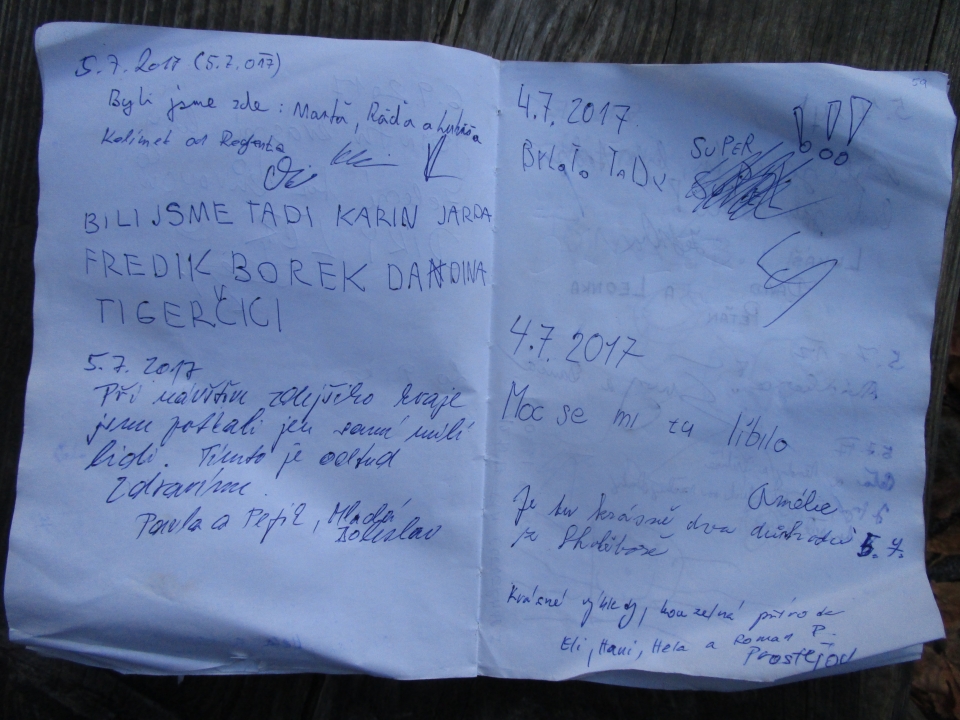 5.7.2017 (5.7.017)
Byli jsme zde: Martă, Ráďa a Lukáša
Kolimet od
BILI JSME TADI KARIN JARDA
FREDIK BOREK DANDINA
TIGERČICI
5.7.2017
Při návštěvě zdejšího kraje
jsme potkali jen samé milé
lidi. Tímto je odtud
zdravíme.
Pavla a Petr, Mladá
Boleslav
59
4.7.2017
BYLO TO TADY SUPER !!!
4.7.2017
Moc se mi tu líbilo
Amálie
Je tu krásně dva
je 5.7.
Krásné výhledy, kouzelná příroda
Eli, Hani, Hela a Roman P.
Prostějov